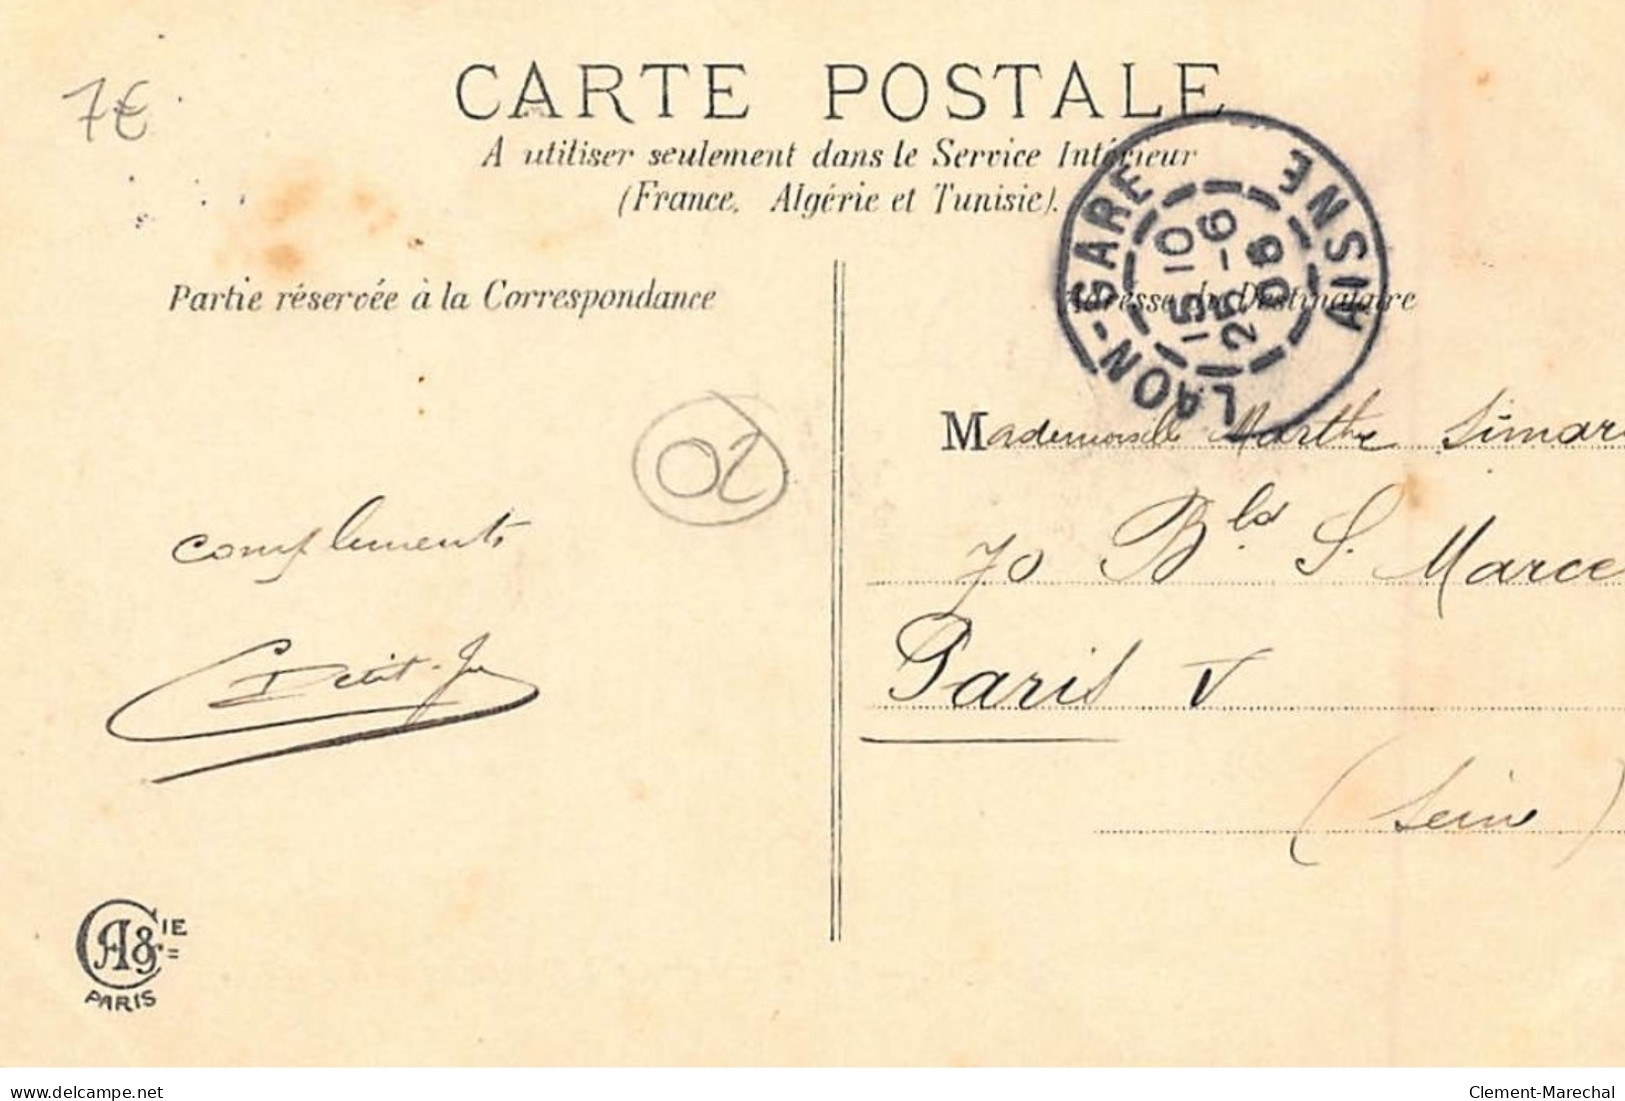 7€
CARTE POSTALE
A utiliser seulement dans le Service Intérieur
(France, Algérie et Tunisie).
LAON-GARE AISNE
15 10
25 -6
06
Partie réservée à la Correspondance
Adresse du Destinataire
02
Mademoiselle Marthe Simar
70 Bld S. Marce
Paris V
(Seine)
compliments
Petit
CA & CIE
PARIS
delcampe.net
Clement-Marechal